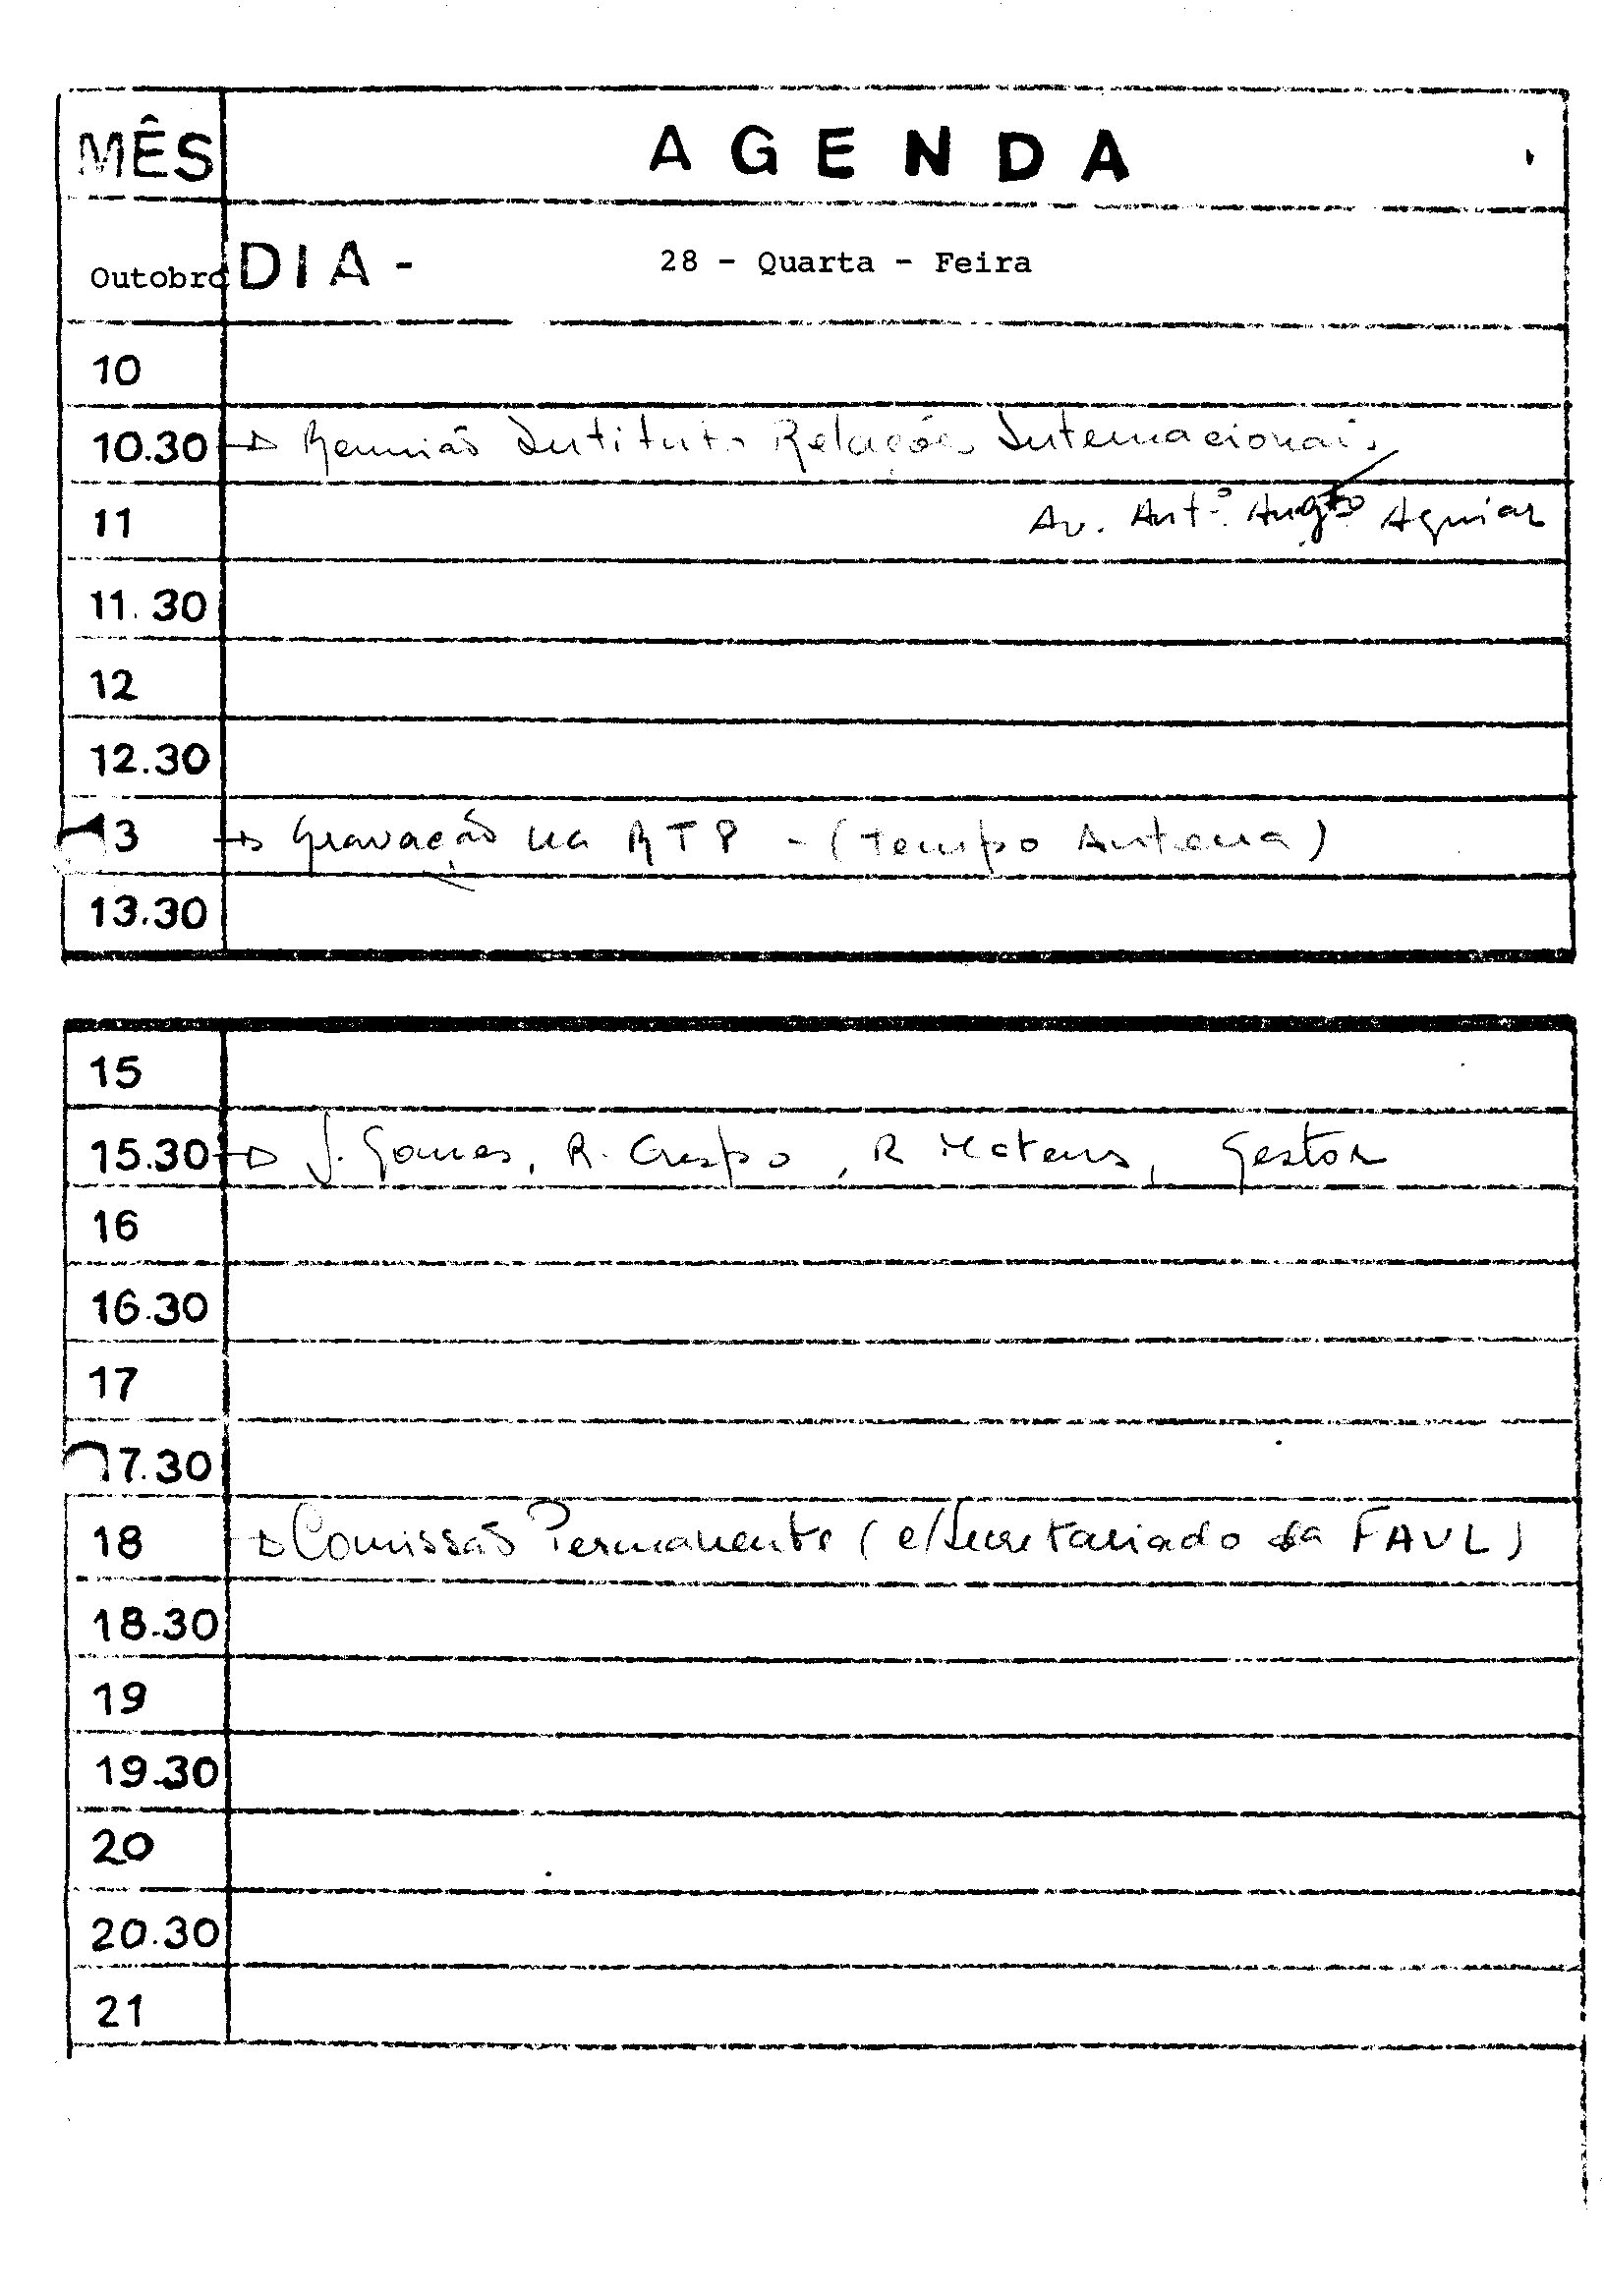 MÊS AGENDA
Outubro DIA - 28 - Quarta - Feira
10
10.30 Reunião Instituto Relações Internacionais
11 Av. Antº. Augtº. Aguiar
11.30
12
12.30
13 Gravação na RTP - (Tempo Antena)
13.30
15
15.30 J. Gomes, R. Crespo, R Mateus, Gestor
16
16.30
17
17.30
18 Comissão Permanente (c/Secretariado da FAUL)
18.30
19
19.30
20
20.30
21